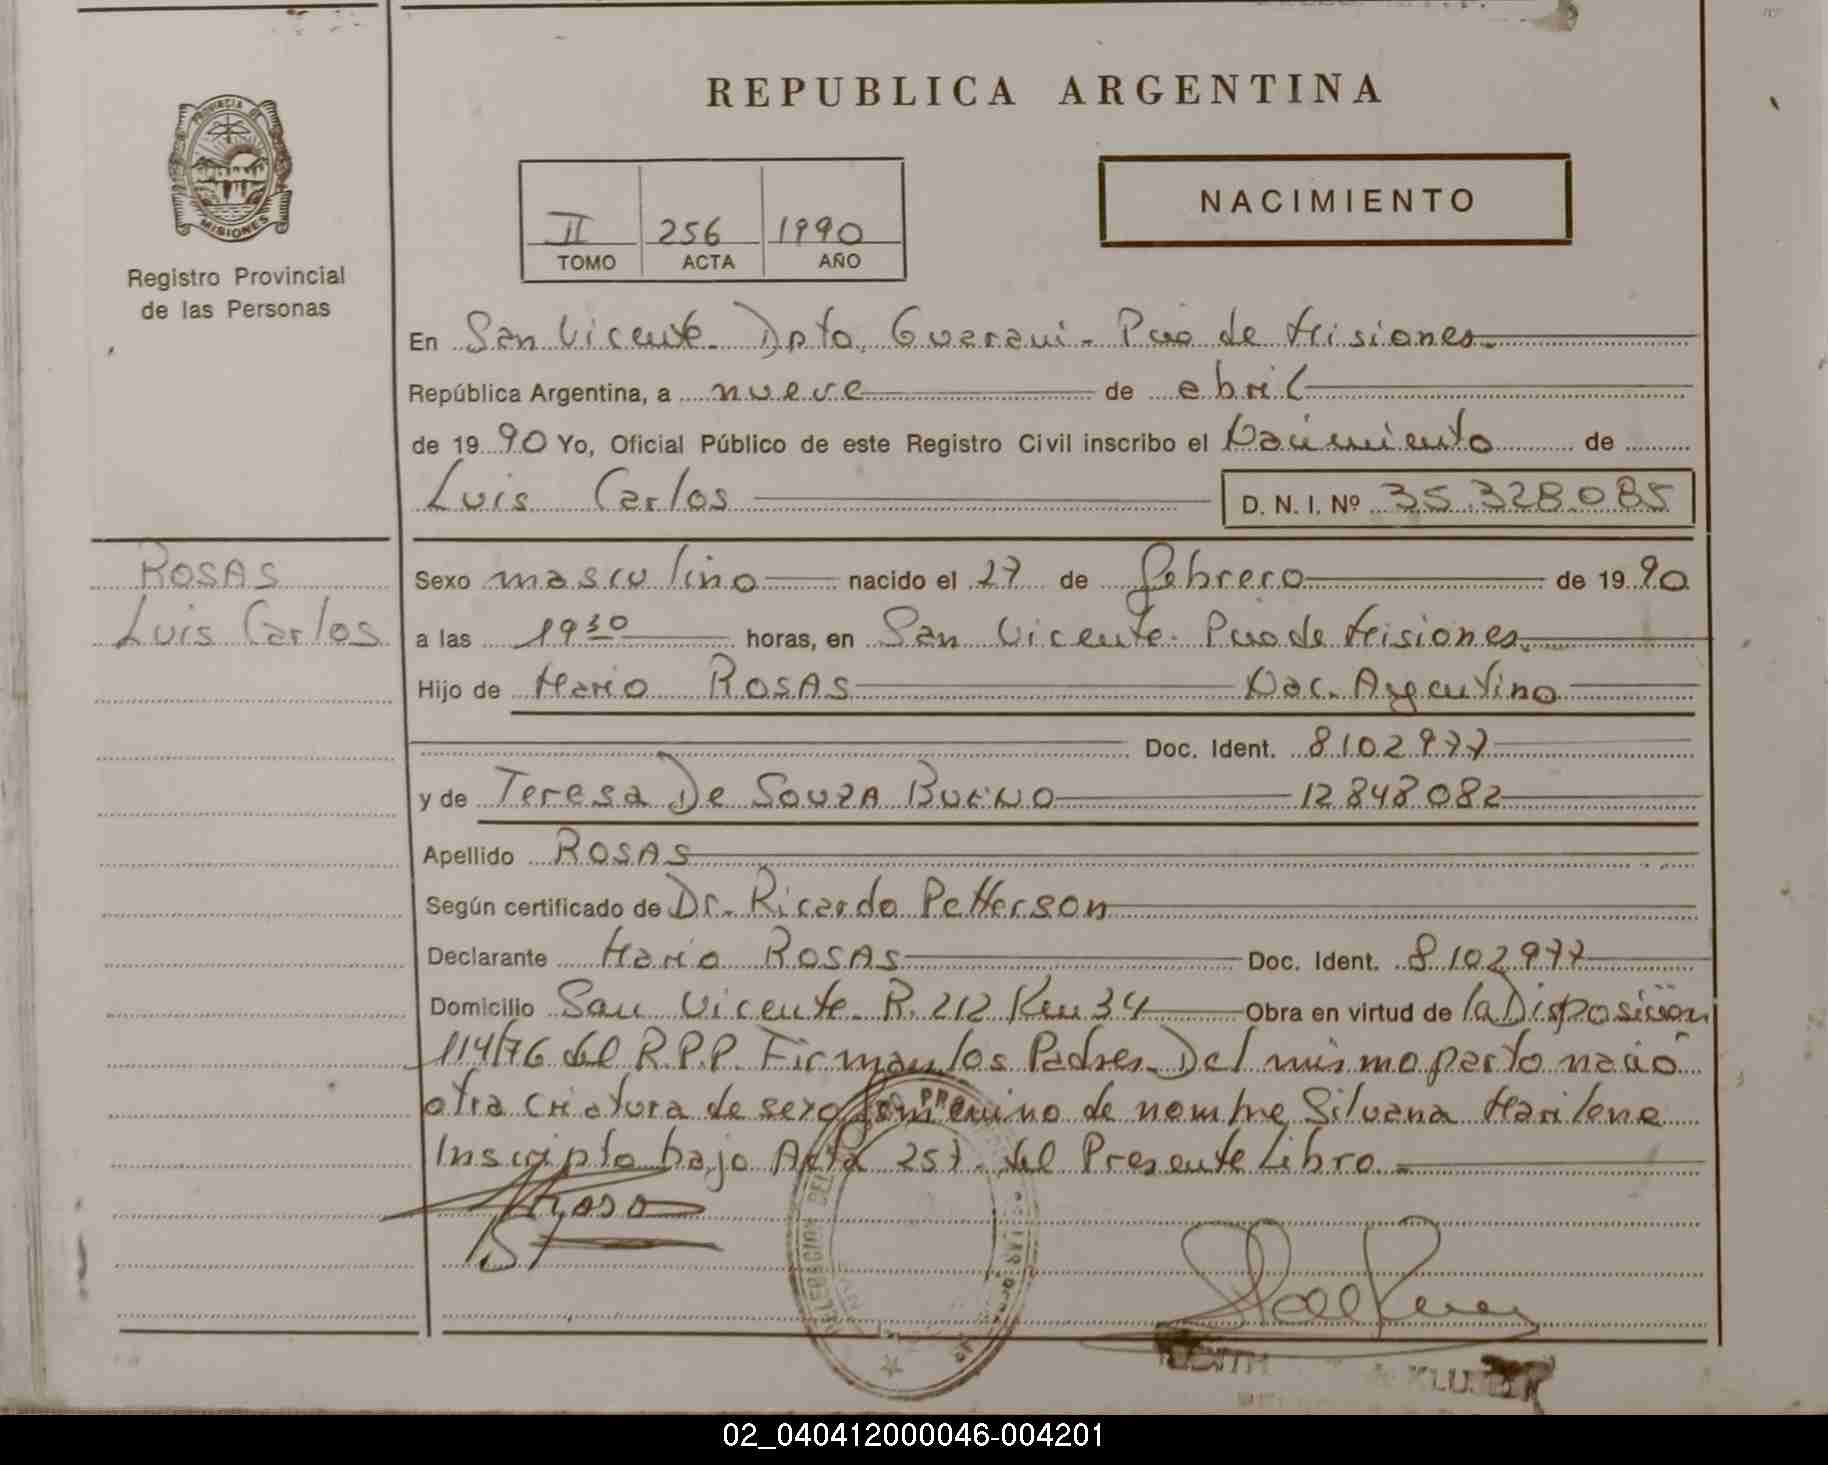 REPUBLICA ARGENTINA
PROVINCIA DE MISIONES
Registro Provincial
de las Personas
NACIMIENTO
II 256 1990
TOMO ACTA AÑO
En San Vicente. Dpto. Guaraní. Pcia de Misiones.
República Argentina, a nueve de abril
de 1990 Yo, Oficial Público de este Registro Civil inscribo el Nacimiento de
Luis Carlos D. N. I. Nº 35.328.085
ROSAS
Luis Carlos
Sexo masculino nacido el 27 de febrero de 1990
a las 19 30 horas, en San Vicente. Pcia de Misiones.
Hijo de Mario ROSAS Nac. Argentino
Doc. Ident. 8102977
y de Teresa De SOUZA BUENO 12848082
Apellido ROSAS
Según certificado de Dr. Ricardo Petterson
Declarante Mario ROSAS Doc. Ident. 8102977
Domicilio San Vicente. R. 212 Km 34 Obra en virtud de la Disposición
114/76 del R.P.P. Firman los Padres. Del mismo parto nació
otra criatura de sexo femenino de nombre Silvana Marilene
Inscripto bajo Acta 257. del Presente Libro.
02_040412000046-004201